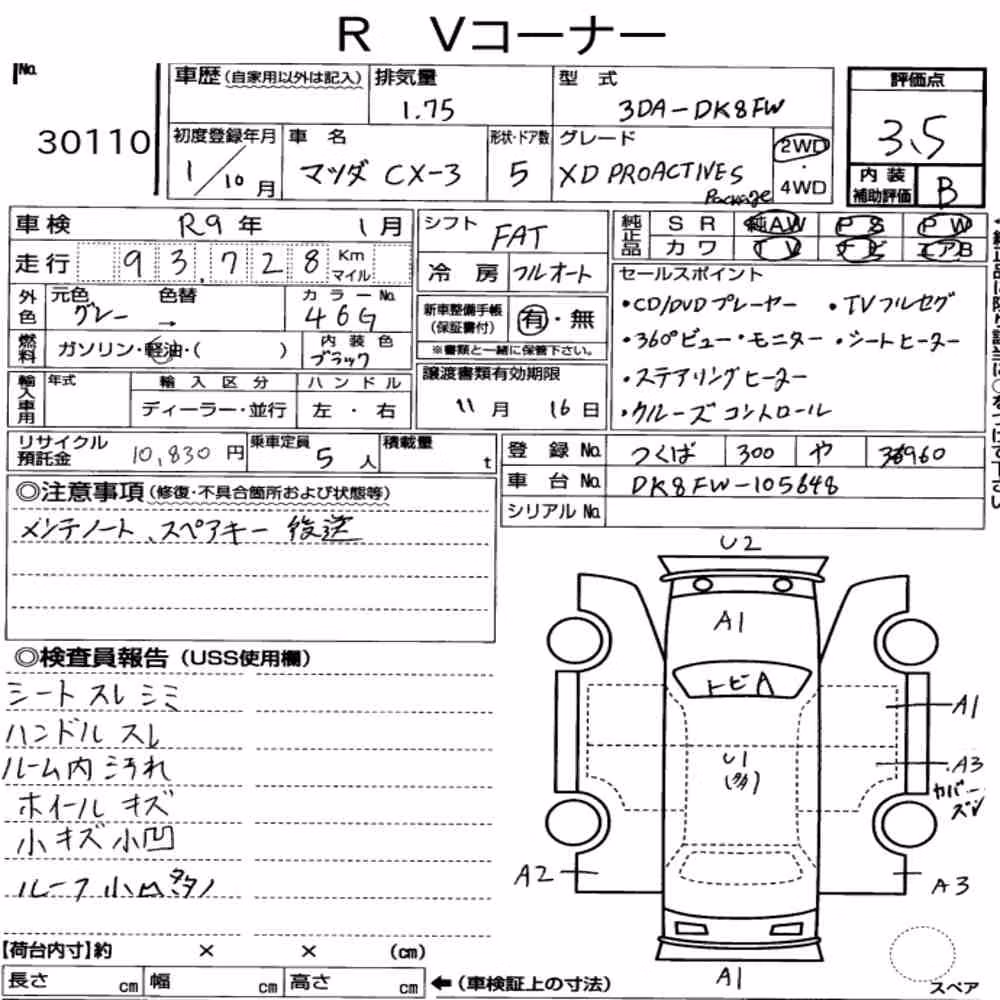 R Vコーナー
No. 30110
車歴(自家用以外は記入)
排気量 1.75
型式 3DA-DK8FW
評価点 3.5
初度登録年月 1/10月
車名 マツダ CX-3
形状・ドア数 5
グレード XD PROACTIVE S Package
2WD・4WD
内装補助評価 B
車検 R9年 1月
シフト FAT
純正品 SR 純AW PS PW
カワ TV ナビ エアB
走行 93,728 Km マイル
冷房 フルオート
セールスポイント
・CD/DVDプレーヤー ・TVフルセグ
・360°ビュー・モニター ・シートヒーター
・ステアリングヒーター
・クルーズコントロール
外色 元色 グレー 色替 → カラーNo. 46G
新車整備手帳(保証書付) 有・無
※書類と一緒に保管下さい。
燃料 ガソリン・軽油・( ) 内装色 ブラック
譲渡書類有効期限 11月 16日
輸入車用 年式 輸入区分 ハンドル
ディーラー・並行 左・右
リサイクル預託金 10,830円
乗車定員 5人
積載量 t
登録No. つくば 300 や
車台No. DK8FW-105648
シリアルNo.
◎注意事項(修復・不具合箇所および状態等)
メンテノート、スペアキー 後送
◎検査員報告(USS使用欄)
シート スレ シミ
ハンドル スレ
ルーム内 汚れ
ホイール キズ
小キズ小凹
U2
A1
トビA
U1
(多)
A1
A3
カバーズレ
A2
A3
A1
スペア
【荷台内寸】約 × × (cm)
長さ cm 幅 cm 高さ cm ←(車検証上の寸法)